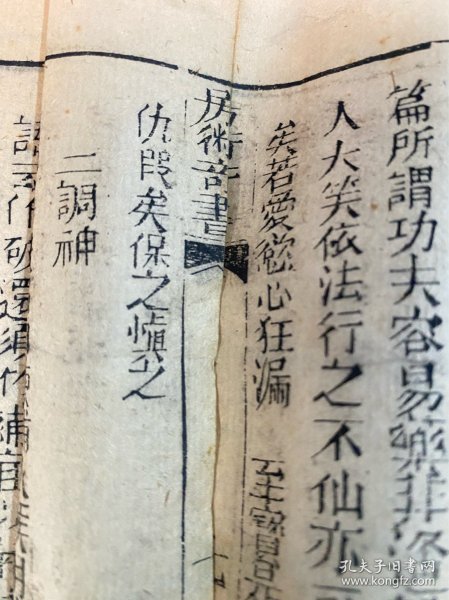 篇所謂功夫容易藥非
人大笑依法行之不仙亦
矣若愛慾心狂漏
房術奇書
仇叚矣保之慎之
二調神
語云竹破還須竹補
孔夫子旧书网
www.kongfz.com